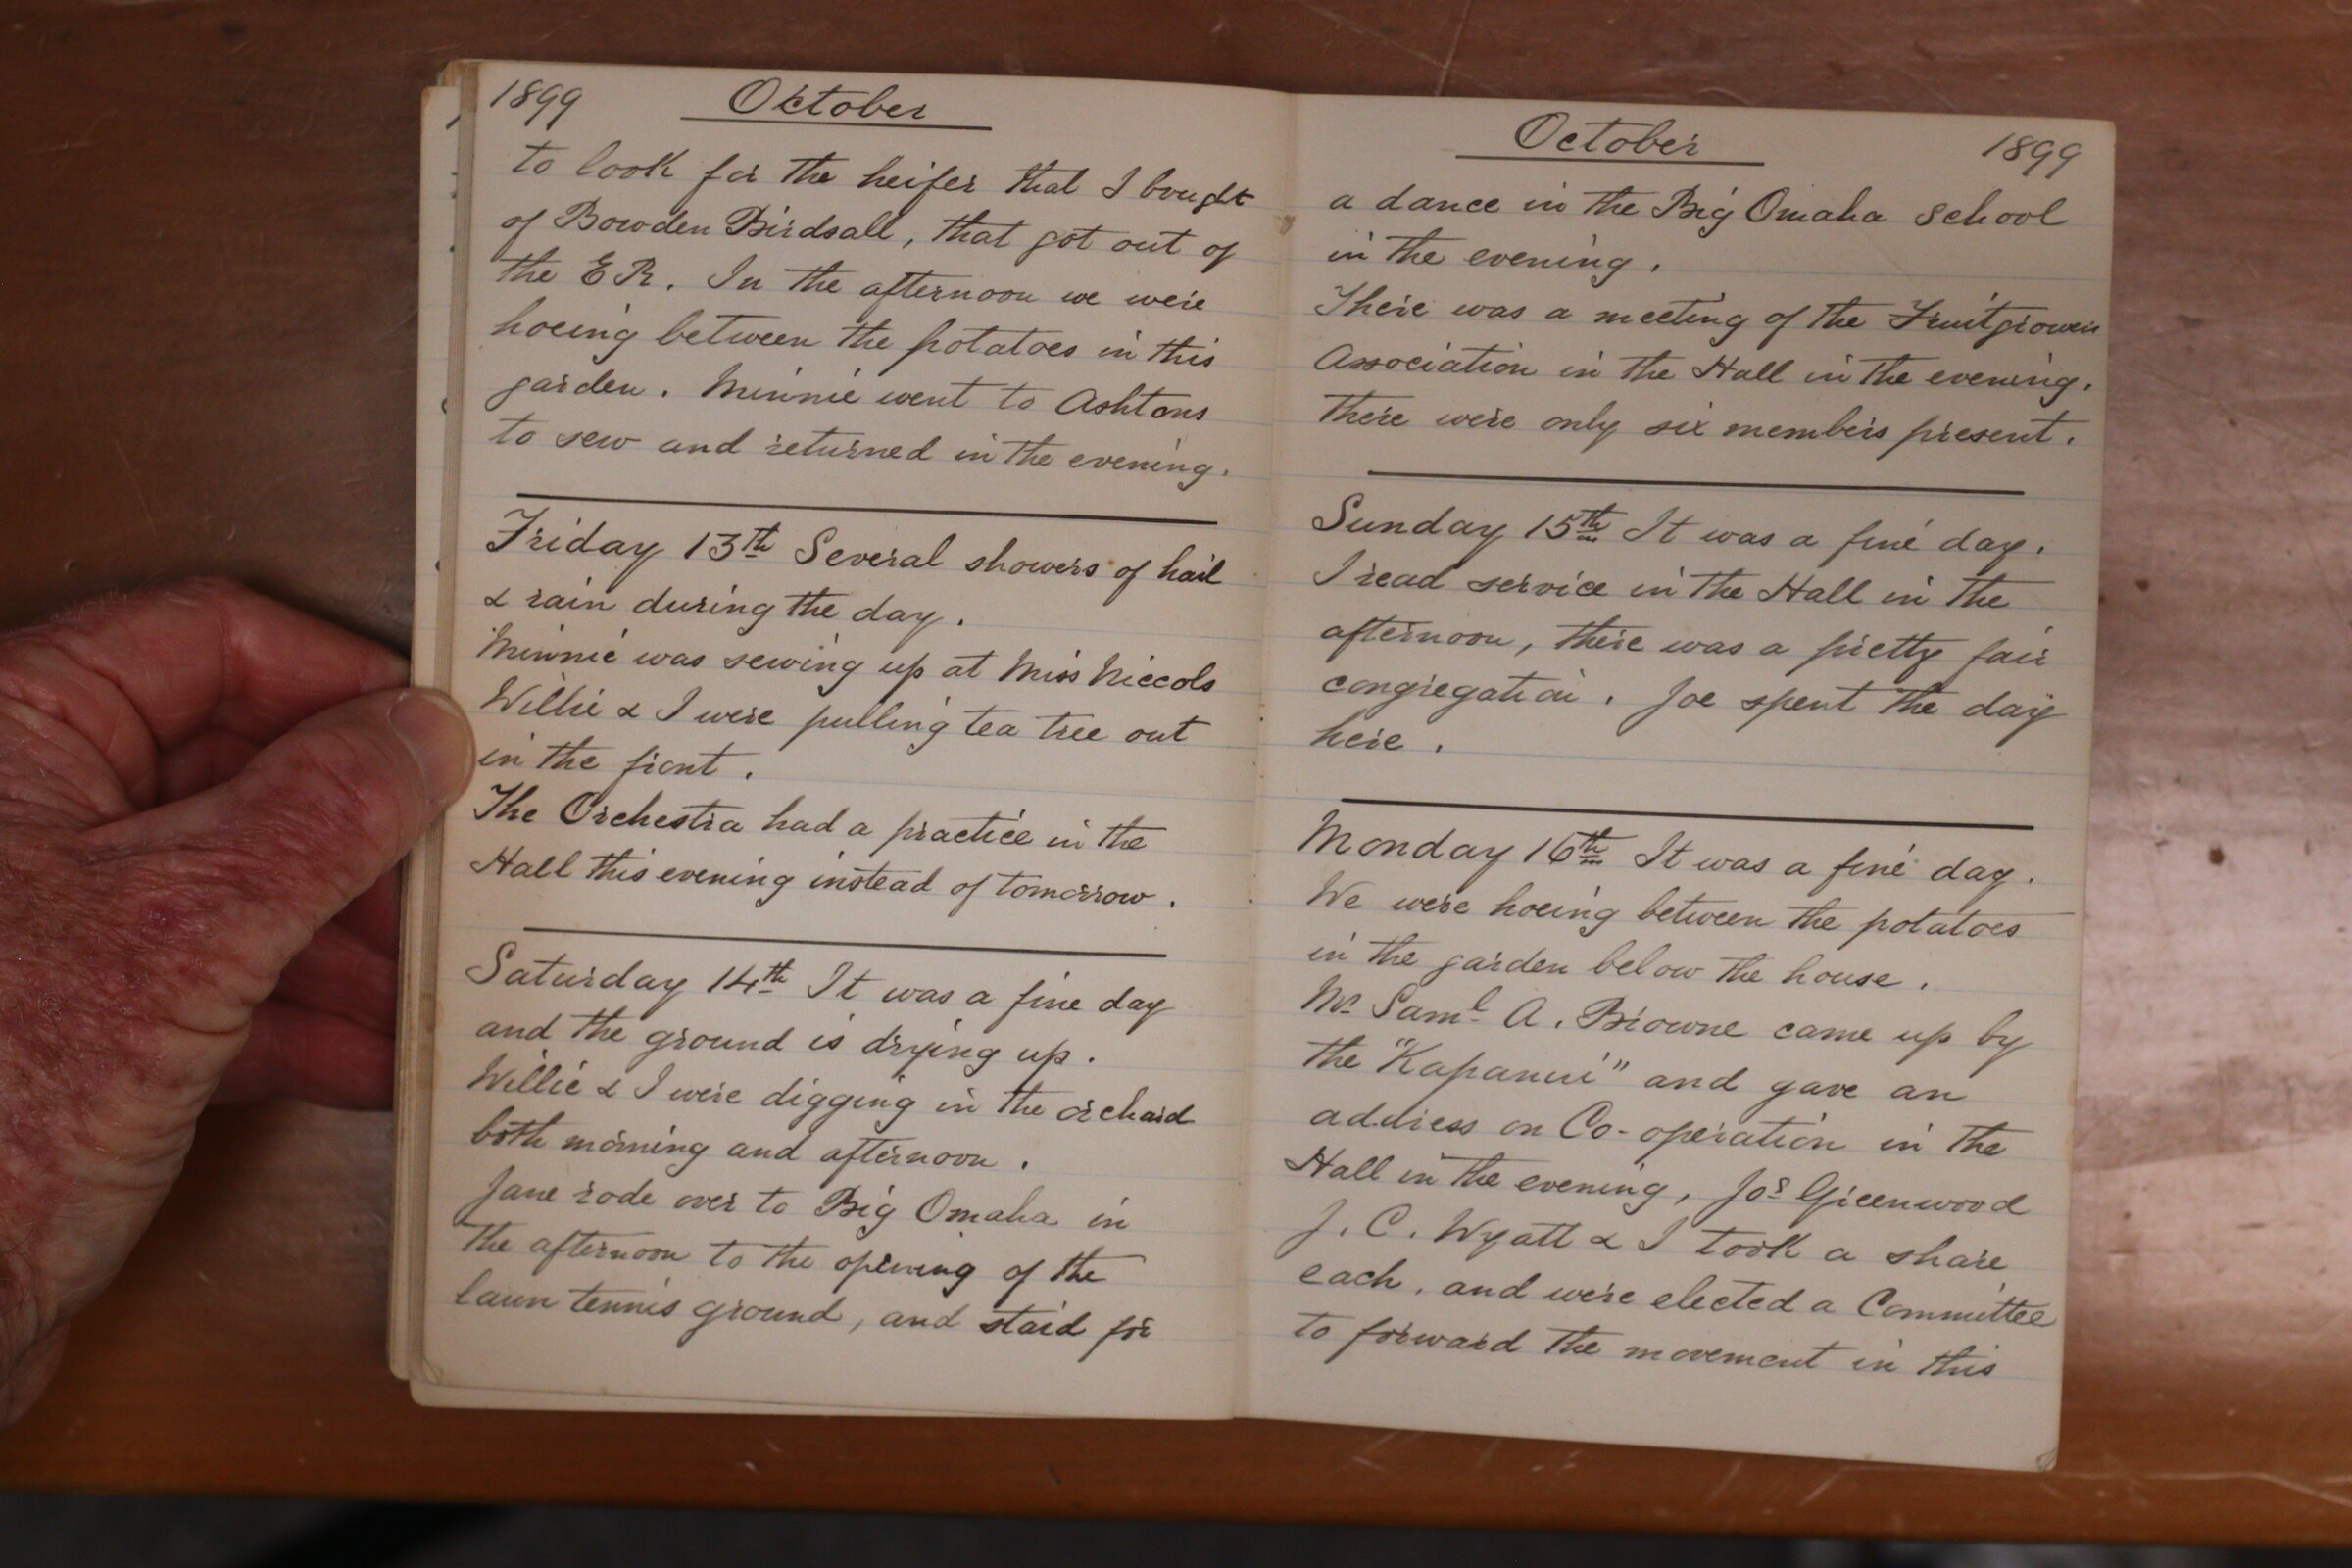 1899 October
to look for the heifer that I bought
of Bowden Birdsall, that got out of
the E R. In the afternoon we were
hoeing between the potatoes in this
garden. Minnie went to Ashtons
to sew and returned in the evening.
Friday 13th Several showers of hail
& rain during the day.
Minnie was sewing up at Miss Niccols
Willie & I were pulling tea tree out
in the front.
The Orchestra had a practice in the
Hall this evening instead of tomorrow.
Saturday 14th It was a fine day
and the ground is drying up.
Willie & I were digging in the orchard
both morning and afternoon.
Jane rode over to Big Omaha in
the afternoon to the opening of the
lawn tennis ground, and staid for
October 1899
a dance in the Big Omaha School
in the evening.
There was a meeting of the Fruitgrowers
Association in the Hall in the evening.
There were only six members present.
Sunday 15th It was a fine day.
I read service in the Hall in the
afternoon, there was a pretty fair
congregation. Joe spent the day
here.
Monday 16th It was a fine day.
We were hoeing between the potatoes
in the garden below the house.
Mr Saml A. Browne came up by
the "Kapanui" and gave an
address on Co-operation in the
Hall in the evening, Jos Greenwood
J. C. Wyatt & I took a share
each, and were elected a Committee
to forward the movement in this